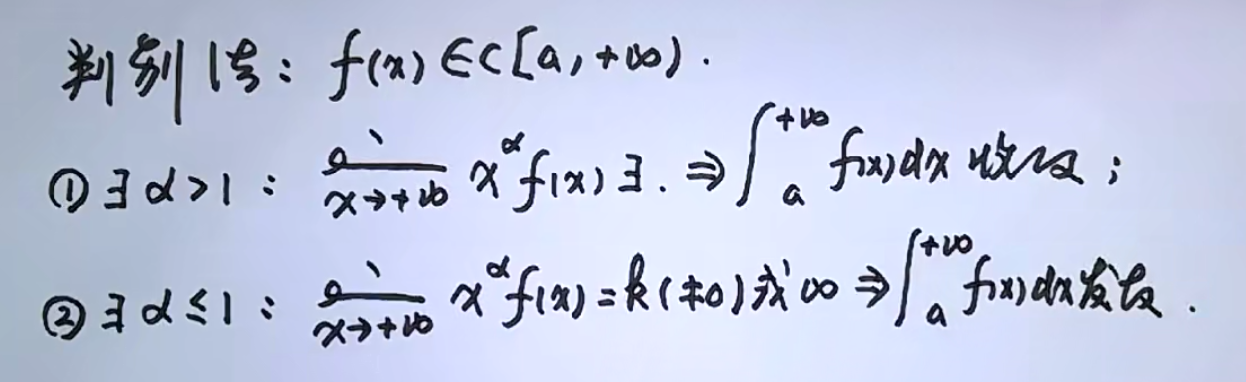 判别法：f(x)∈C[a,+∞).
① ∃α>1：lim_{x→+∞} x^α f(x) ∃. ⇒ ∫_a^{+∞} f(x)dx 收敛；
② ∃α≤1：lim_{x→+∞} x^α f(x)=k(≠0)或∞ ⇒ ∫_a^{+∞} f(x)dx发散.